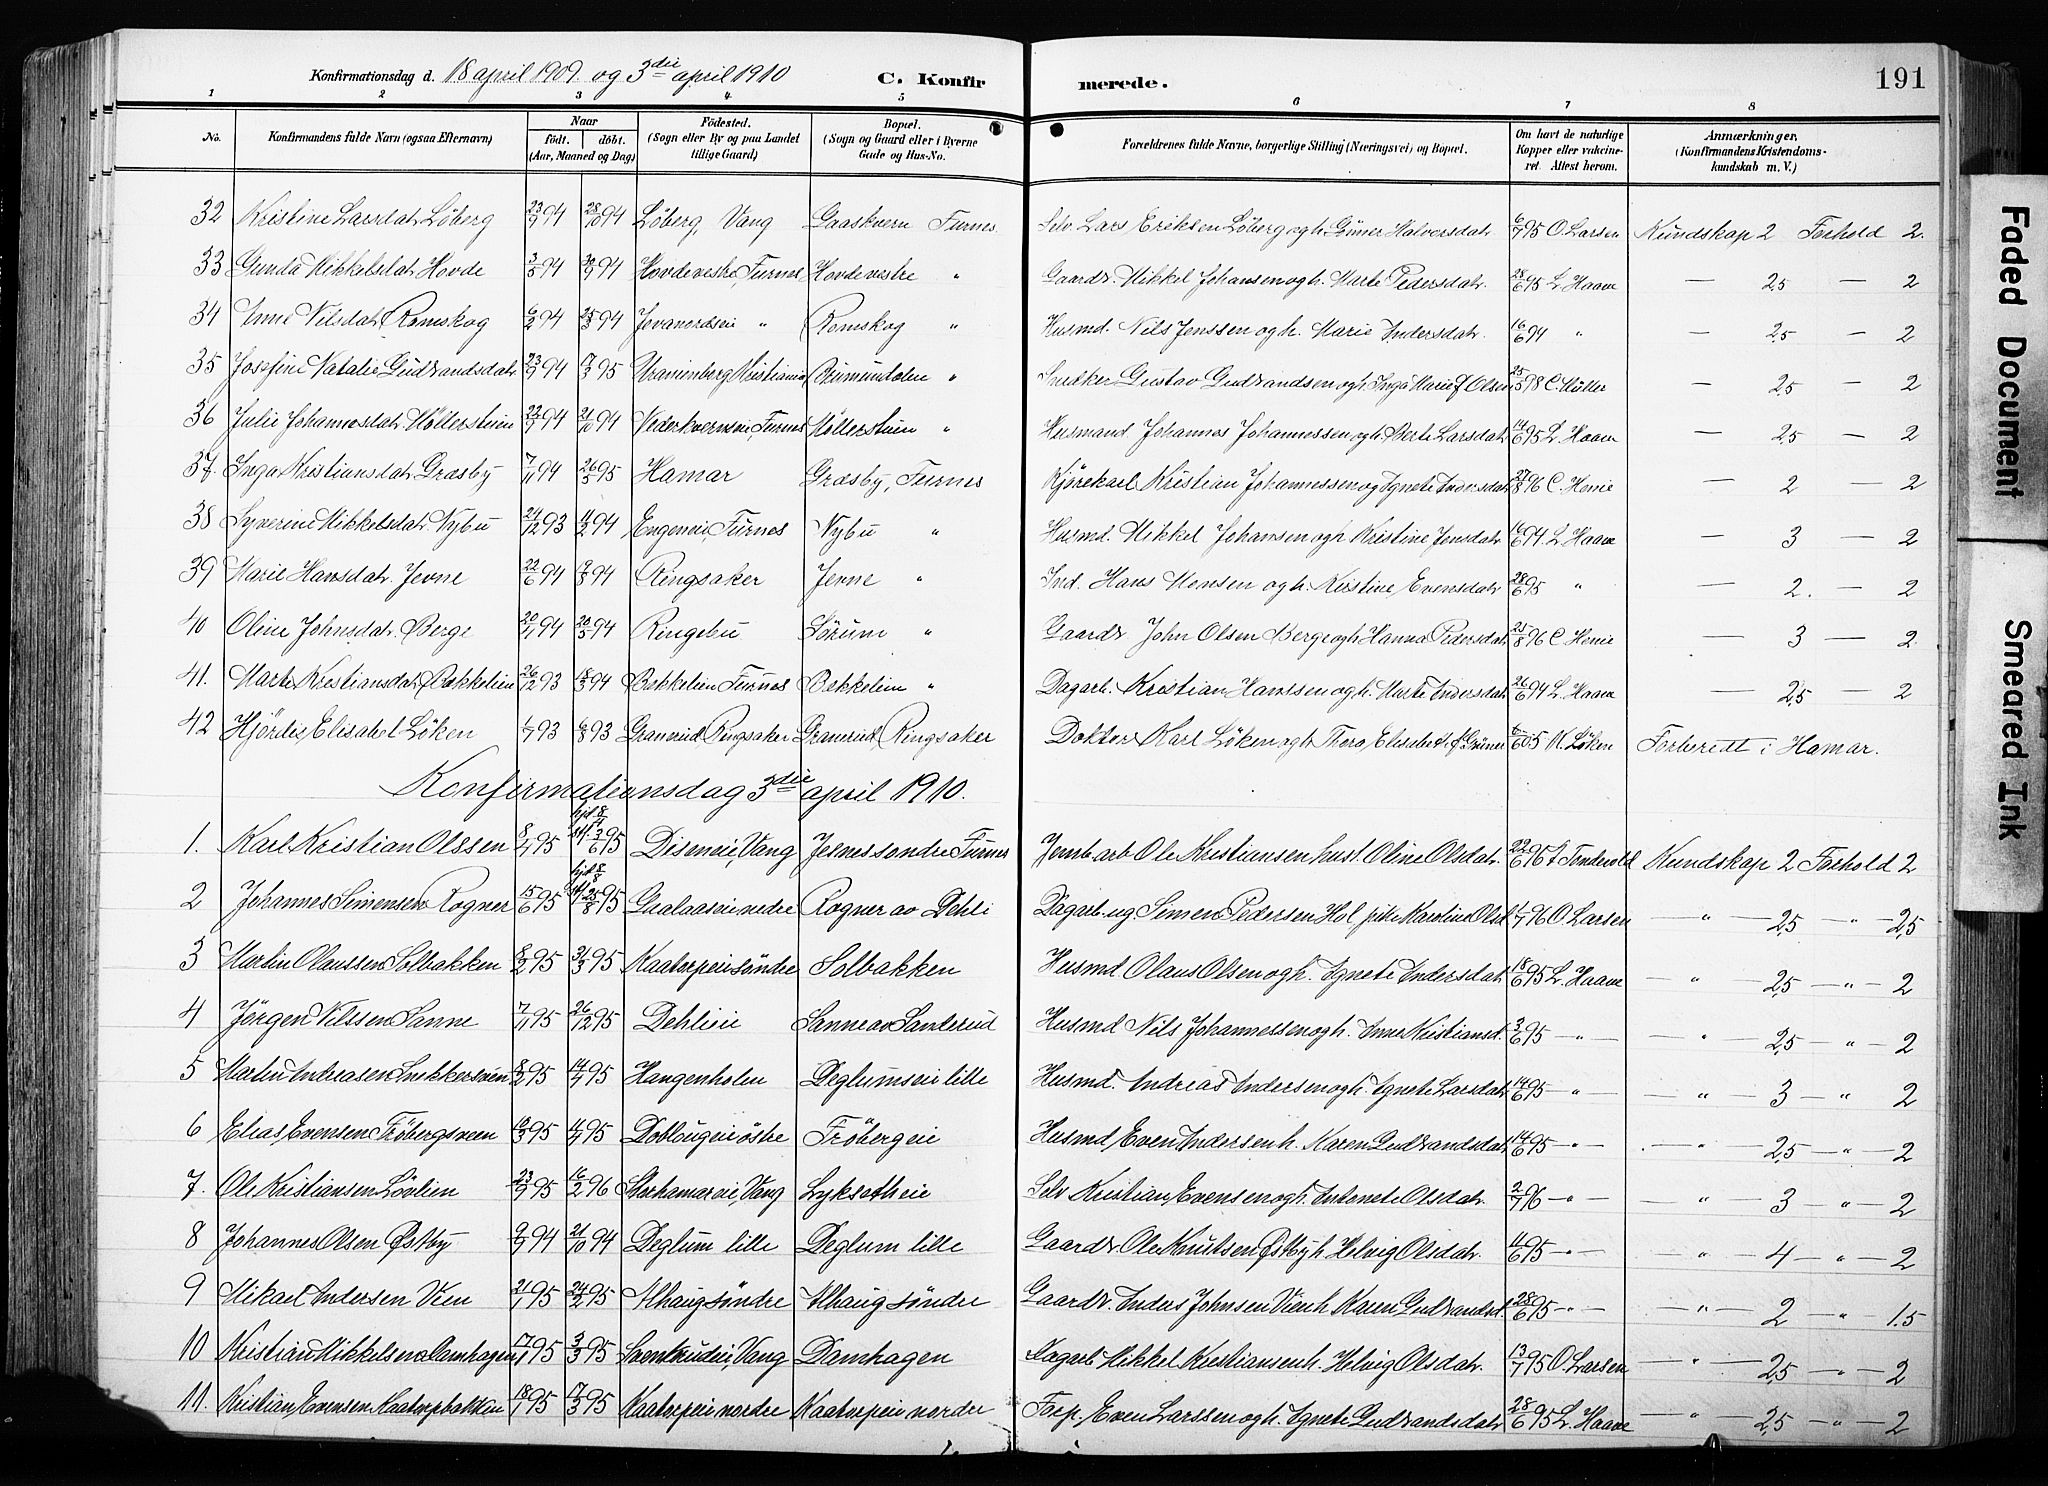 Konfirmationsdag d. 18 april 1909 og 3die april 1910 C. Konfirmerede. 191
1 2 3 4 5 6 7 8
No. Konfirmandens fulde Navn (ogsaa Efternavn) Naar født. døbt. (Aar, Maaned og Dag) Fødested. (Sogn eller By og paa Landet tillige Gaard) Bopæl. (Sogn og Gaard eller i Byerne Gade og Hus-No. Forældrenes fulde Navne, borgerlige Stilling (Næringsvei) og Bopæl. Om havt de naturlige Kopper eller vakcineret. Attest herom. Anmærkninger. (Konfirmandens Kristendomskundskab m. V.)
32 Kristine Larsdatr Löberg 23/9 94 28/10 94 Löberg, Vang Gaaskvern Furnes Selv. Lars Eriksen Löberg og h. Guner Halversdatr 6/7 95 O. Larsen Kundskap 2 Forhold 2.
33 Gunda Mikkelsdatr Hovde 3/5 94 Hovde vestre, Furnes Hovde vestre " Gaardr. Mikkel Johansen og h. Marte Pedersdatr. 28/6 95 L. Haave — 2,5 — 2
34 Anne Nilsdatr Romskog 6/2 94 25/3 94 " Romskog " Husmd. Nils Jenssen og h. Marie Andersdatr. 16/6 94 " — 2,5 — 2
35 Josefine Natalie Gudbrandsdatr 23/9 94 17/3 95 Uranienborg Kristiania Brumundalen " Snedker Gustav Gudbrandsen og h. Inga Marie f. Olsen 25/5 98 C. Möller — 2,5 — 2
36 Julie Johannesdatr Möllerstuen 22/9 94 21/10 94 Nederkvernseie, Furnes Möllerstuen " Husmand Johannes Johannessen og h. Berte Larsdatr 14/6 95 L. Haave — 2,5 — 2
37. Inga Kristiansdatr Græsby 7/11 94 26/5 95 Hamar Græsby, Furnes Kjörekarl Kristian Johannessen og Agnete Andersdatr 27/8 96 C. Henie — 2 — 2
38 Syverine Mikkelsdatr Nybu 24/12 93 11/2 94 Engeneie, Furnes Nybu " Husmd. Mikkel Johansen og h. Kristine Jensdatr 16/6 94 L. Haave — 3 — 2
39 Marie Hansdatr Jevne 22/6 94 9/8 94 Ringsaker Jevne " Ind. Hans Monsen og h. Kristine Evensdatr 28/6 95 " — 2. — 2
40 Oline Johnsdatr Berge 20/4 94 20/5 94 Ringebu Sörum " Gaardr John Olsen Berge og h. Hanna Pedersdatr 25/8 96 C. Henie — 3 — 2
41. Marte Kristiansdatr Bekkelien 26/12 93 18/3 94 Bekkelien Furnes Bekkelien " Dagarb. Kristian Hanssen og h. Marte Andersdatr 26/6 94 L. Haave — 2,5 — 2
42 Hjördis Elisabet Löken 1/7 93 6/8 93 Granerud Ringsaker Granerud Ringsaker Doktor Karl Löken og h. Thora Elisabet f. Grüner 05 K. Löken Forberedt i Hamar.
Konfirmationsdag 3die april 1910.
1. Karl Kristian Olssen 8/4 95 hjd 8/4 stf. 3/6 95 Diseneie, Vang Jesnes søndre Furnes Jernb.arb Ole Kristiansen hust. Oline Olsdatr. 22/6 96 Kundskap 2 Forhold 2
2 Johannes Simensen Rogner 15/6 95 25/8 95 Rogner av Dehli Dagarb. ug. Simen Pedersen Hol, pike Karoline Olsd 1/7 96 O. Larsen — " — 2,5 — " — 2,5
3 Martin Olaussen Solbakken 8/2 95 31/3 95 Kaatorpeie söndre Solbakken Husmd Olaus Olsen og h. Agnete Andersdatr 18/6 95 L. Haave — " — 2,5 — " — 2
4 Jörgen Nilssen Sanne 7/11 95 26/12 95 Dehlieie Sanne av Santerud Husmd Nils Johannessen og h. Anne Kristiansd. 3/6 95 — " — — " — 2,5 — " — 2
5 Martin Andreasen Snekkersveen 8/2 95 14/4 95 Hangenholen Deglumseie lille Husmd. Andreas Andersen og h. Agnete Larsdatr 14/6 95 — " — — " — 3 — " — 2
6 Elias Evensen Fröbergsveen 95 95 Doblougeie östre Fröbergeie Husmd Even Andersen h. Karen Gudbrandsdatr 14/6 95 — " — — " — 2,5 — " — 2
7. Ole Kristiansen Lövlien 23/9 95 16/2 96 Storhamareie, Vang Lyksetheie Selv Kristian Evensen og h. Antonete Olsdatr. 2/7 96 — " — — " — 3 — " — 2
8 Johannes Olsen Østby 9/9 94 21/10 94 Deglum lille Deglum lille Gaardr. Ole Knutsen Østby h. Helvig Olsdatr. 4/6 95 — " — — " — 4 — " — 2
9 Mikael Andersen Vien 21/1 95 24/2 95 Alhaug söndre Alhaug söndre Gaardr. Anders Johnsen Vien h. Karen Gudbrandsd. 28/6 95 — " — — " — 2 — " — 1.5
10 Kristian Mikkelsen Damhagen 17/1 95 3/3 95 Svenkrudeie, Vang Damhagen Dagarb. Mikkel Kristiansen h. Helvig Olsdatr. 13/7 95 O. Larsen — " — 2,5 — " — 2
11. Kristian Evensen Kaatorpbakken 18/1 95 17/3 95 Kaatorpeie nordre Kaatorpeie nordre Forp. Even Larssen og h. Agnete Gudbrandsdatr 28/6 95 L. Haave — " — 2,5 — " — 2
Faded Document
Smeared Ink